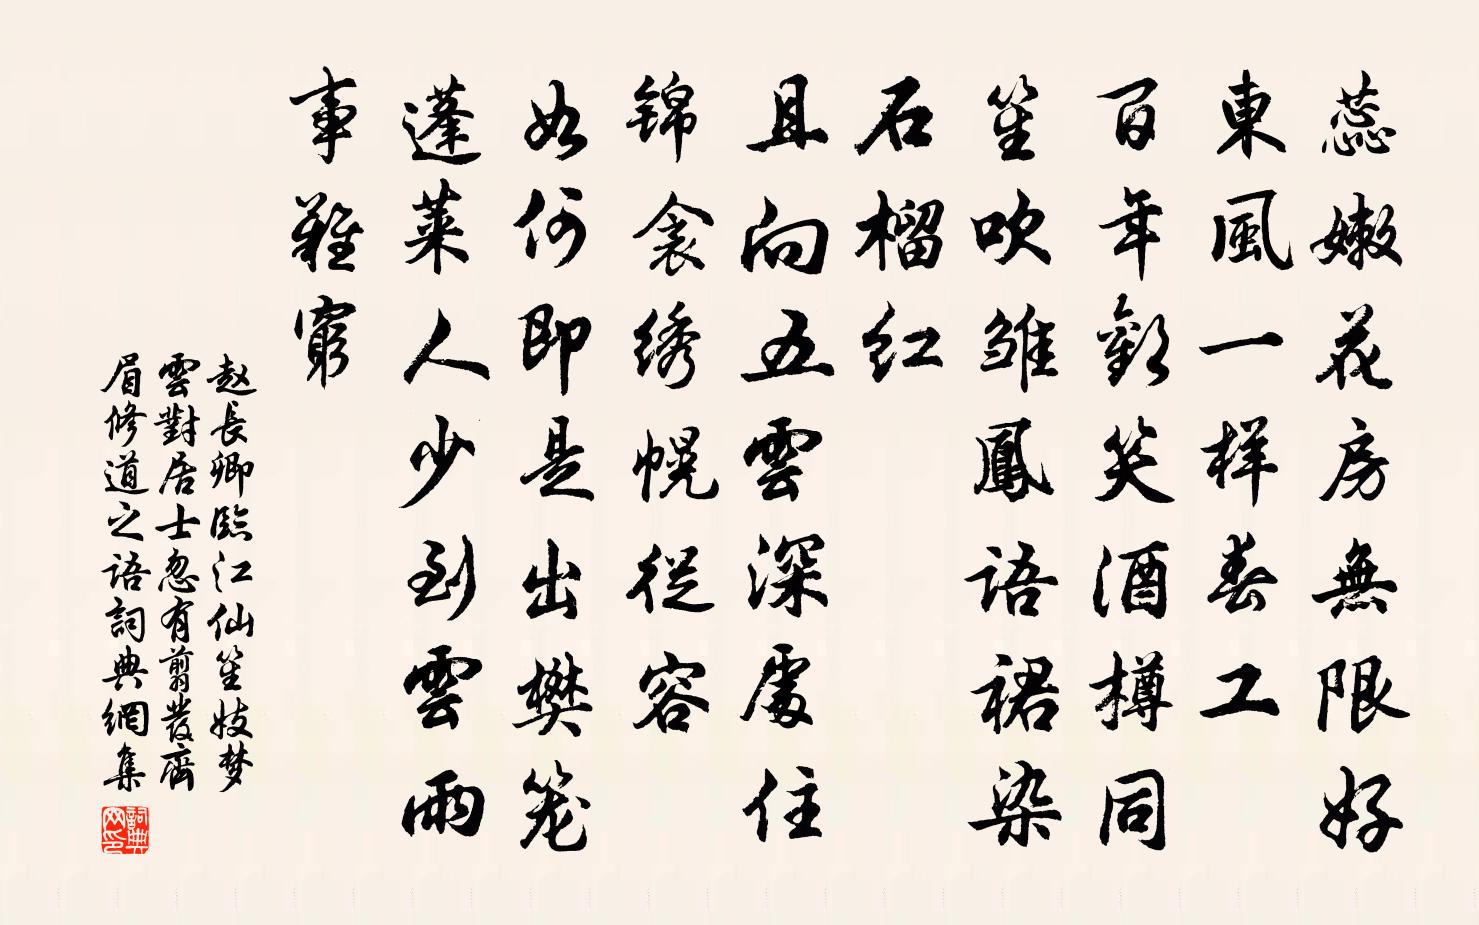 蕊嫩花房無限好
東風一样春工
百年歡笑酒樽同
笙吹雏鳳語裙染
石榴红
且向五雲深處住
锦衾绣幌從容
如何即是出樊笼
蓬莱人少到雲雨
事难窮
赵長卿臨江仙笙妓梦
雲對居士忽有翦髮齊
眉修道之語詞典網集
詞典網印